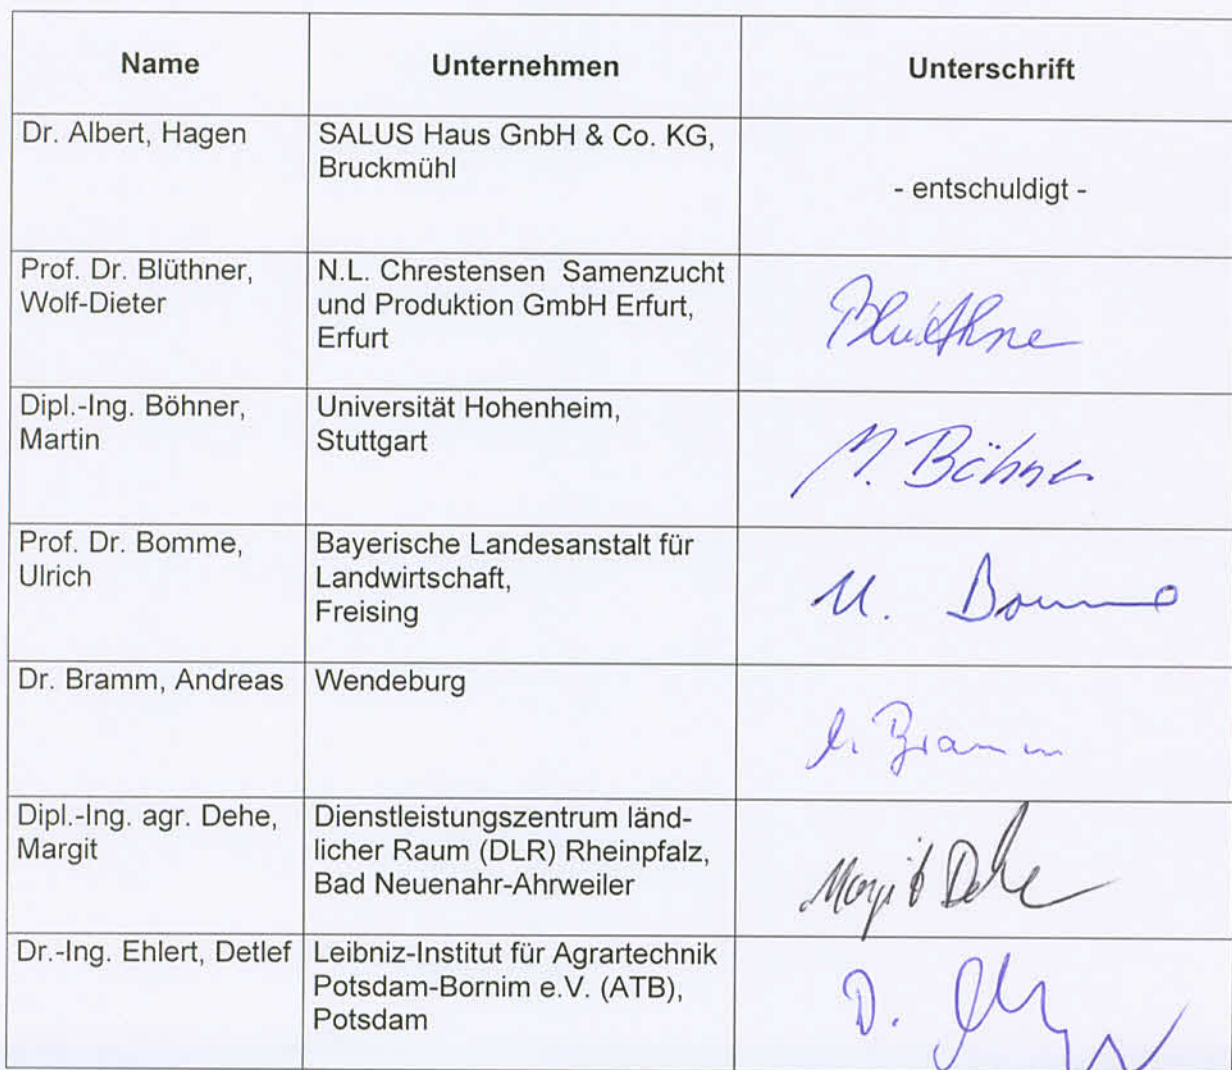 Name Unternehmen Unterschrift
Dr. Albert, Hagen SALUS Haus GnbH & Co. KG,
Bruckmühl
- entschuldigt -
Prof. Dr. Blüthner, N.L. Chrestensen Samenzucht
Wolf-Dieter und Produktion GmbH Erfurt,
Erfurt
Blüthne
Dipl.-Ing. Böhner, Universität Hohenheim,
Martin Stuttgart
M. Böhner
Prof. Dr. Bomme, Bayerische Landesanstalt für
Ulrich Landwirtschaft,
Freising
U. Bomme
Dr. Bramm, Andreas Wendeburg
A. Bramm
Dipl.-Ing. agr. Dehe, Dienstleistungszentrum länd-
Margit licher Raum (DLR) Rheinpfalz,
Bad Neuenahr-Ahrweiler
Margit Dehe
Dr.-Ing. Ehlert, Detlef Leibniz-Institut für Agrartechnik
Potsdam-Bornim e.V. (ATB),
Potsdam
D.